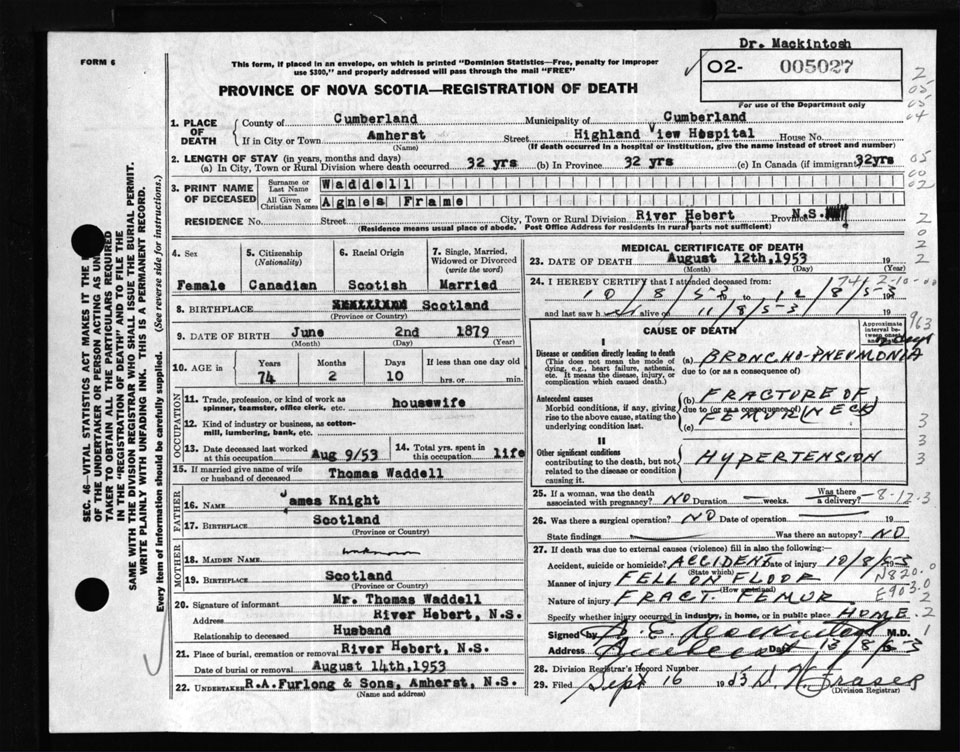 Dr. Mackintosh
FORM 6
This form, if placed in an envelope, on which is printed "Dominion Statistics—Free, penalty for improper
use $300," and properly addressed will pass through the mail "FREE"
02- 005027
For use of the Department only
PROVINCE OF NOVA SCOTIA—REGISTRATION OF DEATH
1. PLACE OF DEATH
County of Cumberland Municipality of Cumberland
If in City or Town Amherst Street Highland View Hospital House No.
(Name) (If death occurred in a hospital or institution, give the name instead of street and number)
2. LENGTH OF STAY (in years, months and days)
(a) In City, Town or Rural Division where death occurred 32 yrs (b) In Province 32 yrs (c) In Canada (if immigrant) 32yrs
3. PRINT NAME OF DECEASED
Surname or Last Name Waddell
All Given or Christian Names Agnes Frame
RESIDENCE No. Street City, Town or Rural Division River Hebert Province N.S.
(Residence means usual place of abode. Post Office Address for residents in rural parts not sufficient)
4. Sex
Female
5. Citizenship
(Nationality)
Canadian
6. Racial Origin
Scotish
7. Single, Married,
Widowed or Divorced
(write the word)
Married
8. BIRTHPLACE Scotland
(Province or Country)
9. DATE OF BIRTH June 2nd 1879
(Month) (Day) (Year)
10. AGE in Years Months Days If less than one day old
74 2 10 hrs. or min.
OCCUPATION
11. Trade, profession, or kind of work as
spinner, teamster, office clerk, etc. housewife
12. Kind of industry or business, as cotton-
mill, lumbering, bank, etc.
13. Date deceased last worked
at this occupation Aug 9/53
14. Total yrs. spent in
this occupation life
15. If married give name of wife
or husband of deceased Thomas Waddell
FATHER
16. Name James Knight
17. Birthplace Scotland
(Province or Country)
MOTHER
18. Maiden Name unknown
19. Birthplace Scotland
(Province or Country)
20. Signature of informant Mr. Thomas Waddell
Address River Hebert, N.S.
Relationship to deceased Husband
21. Place of burial, cremation or removal River Hebert, N.S.
Date of burial or removal August 14th, 1953
22. Undertaker R.A.Furlong & Sons, Amherst, N.S.
(Name and address)
MEDICAL CERTIFICATE OF DEATH
23. DATE OF DEATH August 12th, 1953 19
(Month) (Day) (Year)
24. I HEREBY CERTIFY that I attended deceased from:
10/8/53 to 12/8/53 19
and last saw h alive on 11/8/53 19
CAUSE OF DEATH
Approximate interval between onset and death
I
Disease or condition directly leading to death
(This does not mean the mode of
dying, e.g., heart failure, asthenia,
etc. It means the disease, injury, or
complication which caused death.)
(a) BRONCHO-PNEUMONIA days
due to (or as a consequence of)
Antecedent causes
Morbid conditions, if any, giving
rise to the above cause, stating the
underlying condition last.
(b) FRACTURE OF
due to (or as a consequence of)
FEMUR (NECK)
(c)
II
Other significant conditions
contributing to the death, but not
related to the disease or condition
causing it.
HYPERTENSION
25. If a woman, was the death
associated with pregnancy? NO Duration weeks. Was there
a delivery?
26. Was there a surgical operation? NO Date of operation 19
State findings Was there an autopsy? NO
27. If death was due to external causes (violence) fill in also the following:—
Accident, suicide or homicide? ACCIDENT Date of injury 10/8/53
(State which)
Manner of injury FELL ON FLOOR
(How sustained)
Nature of injury FRACT. FEMUR
Specify whether injury occurred in industry, in home, or in public place HOME
Signed by Mackintosh M.D.
Address Amherst Date 13/8/53
28. Division Registrar's Record Number
29. Filed Sept 16 1953 Fraser
(Division Registrar)
N820.0
E903.0
8-12-3
963
SEC. 46—VITAL STATISTICS ACT MAKES IT THE
OF THE UNDERTAKER OR PERSON ACTING AS UN
TAKER TO OBTAIN ALL THE PARTICULARS REQUIRED
IN THE "REGISTRATION OF DEATH" AND TO FILE THE
SAME WITH THE DIVISION REGISTRAR WHO SHALL ISSUE THE BURIAL PERMIT.
WRITE PLAINLY WITH UNFADING INK. THIS IS A PERMANENT RECORD.
Every item of information should be carefully supplied. (See reverse side for instructions.)